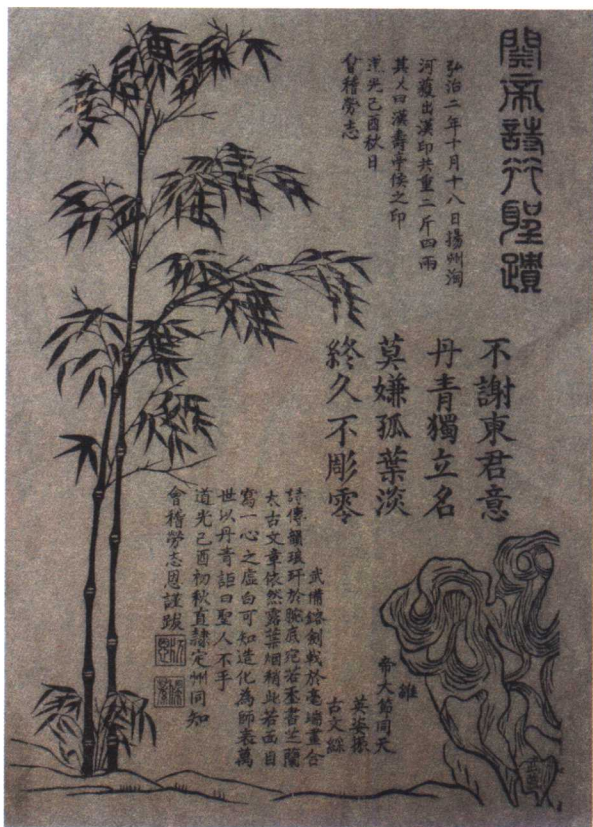 關帝詩竹聖蹟
弘治二年十月十八日揚州淘
河獲出漢印共重二斤四兩
其文曰漢壽亭侯之印
道光己酉秋日
會稽勞志
不謝東君意
丹青獨立名
莫嫌孤葉淡
終久不彫零
維
帝大節同天
英姿振
古文綜
武備鎔劍戟於毫端畫合
詩傳韻琅玕於腕底宛若垂書芝蘭
太古文章依然露葉烟梢此若面目
寫一心之虛白可知造化為師表萬
世以丹青詎曰聖人不乎
道光己酉初秋直隸定州同知
會稽勞志恩謹跋